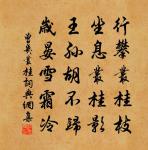 行攀叢桂枝
坐息叢桂影
王孫胡不歸
歲晏雪霜冷
曾奐叢桂詞典網集